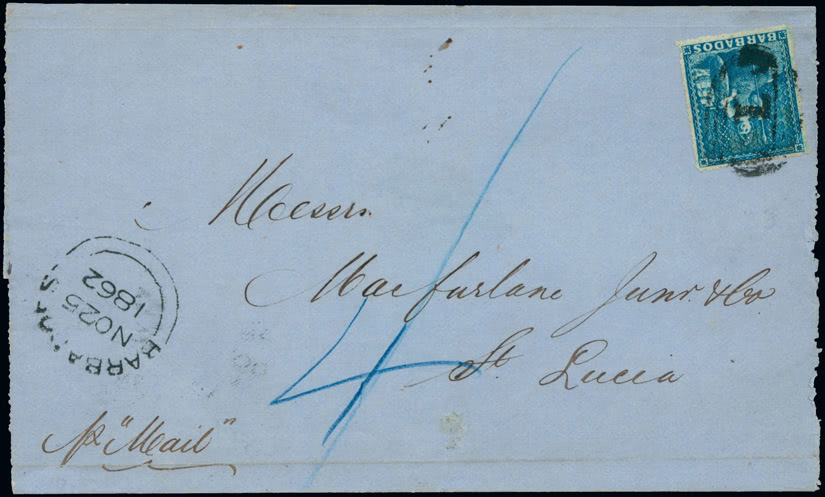 BARBADOS
1
Messrs.
Macfarlane Junr. & Co
St. Lucia
4
BARBADOS
NO 25
1862
pr "Mail"